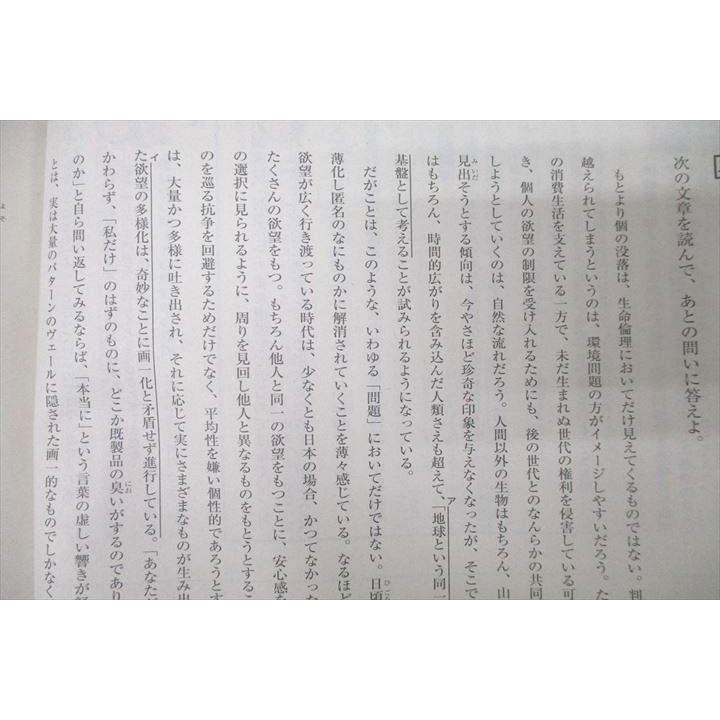 次の文章を読んで、あとの問いに答えよ。
もとより個の没落は、生命倫理においてだけ見えてくるものではない。判
越えられてしまうというのは、環境問題の方がイメージしやすいだろう。た
の消費生活を支えている一方で、未だ生まれぬ世代の権利を侵害している可
き、個人の欲望の制限を受け入れるためにも、後の世代とのなんらかの共同
しようとしていくのは、自然な流れだろう。人間以外の生物はもちろん、山
見出そうとする傾向は、今やさほど珍奇な印象を与えなくなったが、そこで
みいだ
はもちろん、時間的広がりを含み込んだ人類さえも超えて、「地球という同一
ア
基盤として考えることが試みられるようになっている。
だがことは、このような、いわゆる「問題」においてだけではない。日頃
ひごろ
薄化し匿名のなにものかに解消されていくことを薄々感じている。なるほど
欲望が広く行き渡っている時代は、少なくとも日本の場合、かつてなかった
たくさんの欲望をもつ。もちろん他人と同一の欲望をもつことに、安心感を
の選択に見られるように、周りを見回し他人と異なるものをもとうとするこ
のを巡る抗争を回避するためだけでなく、平均性を嫌い個性的であろうとす
は、大量かつ多様に吐き出され、それに応じて実にさまざまなものが生み出
た欲望の多様化は、奇妙なことに画一化と矛盾せず進行している。「あなただ
イ
かわらず、「私だけ」のはずのものに、どこか既製品の臭いがするのであり
にお
のか」と自ら問い返してみるならば、「本当に」という言葉の虚しい響きが
とは、実は大量のパターンのヴェールに隠された画一的なものでしかなく
よそ